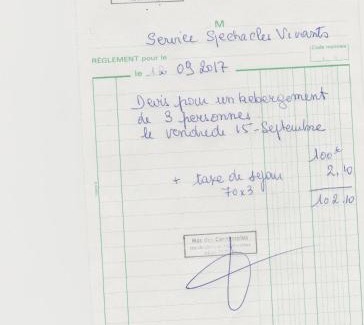 M
Service Spectacles Vivants
REGLEMENT pour le
le 12 09 2017
Devis pour un hebergement
de 3 personnes
le vendredi 15 - Septembre
100€
+ taxe de sejour 2,10
70x3
102.10